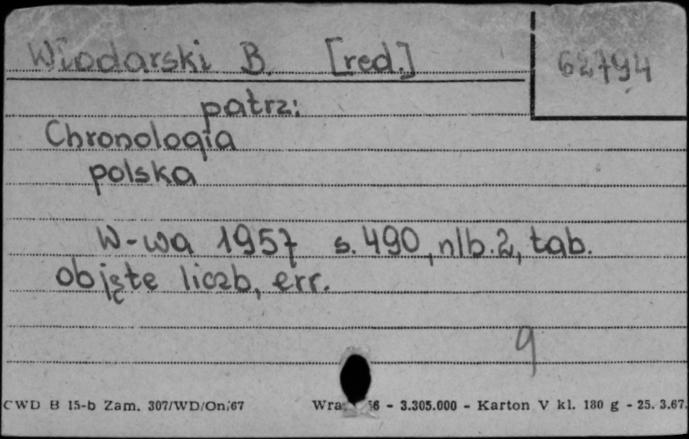 Włodarski B. [red.] 62794
patrz:
Chronologia
polska
W-wa 1957 s. 490, nlb. 2, tab.
objęte liczb, err.
9
CWD B 15-b Zam. 307/WD/On/67 - 3.305.000 - Karton V kl. 180 g - 25. 3.67.